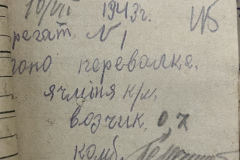 10/VII 1943 г.
регат. №1
оно перевалка.
ячменя к/м.
возчик 0,7
комб.